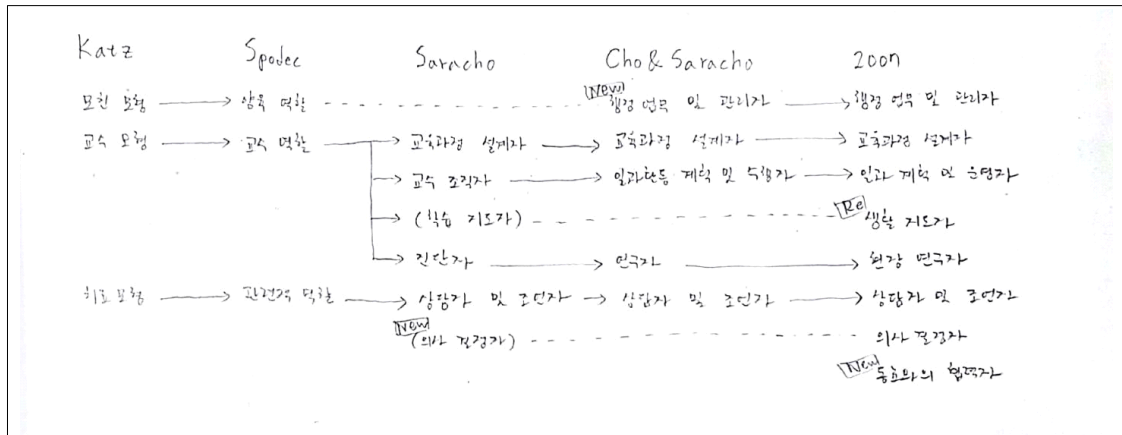 Katz Spodec Saracho Cho & Saracho 2007
모친 모형 양육 역할 New 행정 업무 및 관리자 행정 업무 및 관리자
교수 모형 교수 역할 교육과정 설계자 교육과정 설계자 교육과정 설계자
교수 조직자 일과활동 계획 및 수행자 일과 계획 및 운영자
(학습 지도자) Re 생활 지도자
진단자 연구자 현장 연구자
치료 모형 관련적 역할 상담자 및 조언자 상담자 및 조언자 상담자 및 조언자
New (의사 결정자) 의사 결정자
New 동료와의 협력자